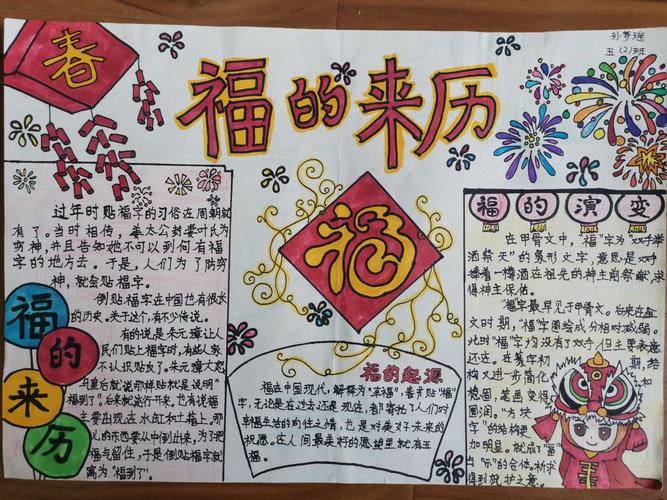 春
福的来历
孙梦瑶
五(2)班
过年时贴福字的习俗在周朝就
有了。当时相传，姜太公封妻叶氏为
穷神，并且告知她不可以到何有福
字的地方去。于是，人们为了防穷
神，就会贴福字。
倒贴福字在中国也有很长
的历史。关于这个，有不少传说。
有的说是朱元璋让人
民们贴上福字时，有些人家
不认识贴反了。朱元璋大怒
马皇后就说那样贴就是说明"
福到了"。后来就流行开来，也有说福
主要出现在水缸和土箱上。那
的东西要从中倒出来，为了把
福气留住，于是倒贴福字就
寓为"福到了"。
福
的
来
历
福
福的起源
福在中国现代，解释为"幸福"，春节贴"福"
字，无论是在过去还是现在，都寄托了人们对
幸福生活的向往之情，也是对美好未来的
祝愿。在人间最美好的愿望里就有五
福。
福的演变
在甲骨文中，"福"字为"双手举
酒祭天"的象形文字，意思是双手
捧着一樽酒在祖先的神主前祭献，求
得神主保佑。
"福"字最早见于甲骨文。后来在金
文时期，"福"字图绘成分相对减弱。
此时"福"字均没有了双手，但主要表意
还在。在篆字初期，结
构又进一步简化和
稳固，笔画变得
圆润，"方块
字"的结构更
加明显。就成了"畐"
与"示"的合体。祈求
得到之意。